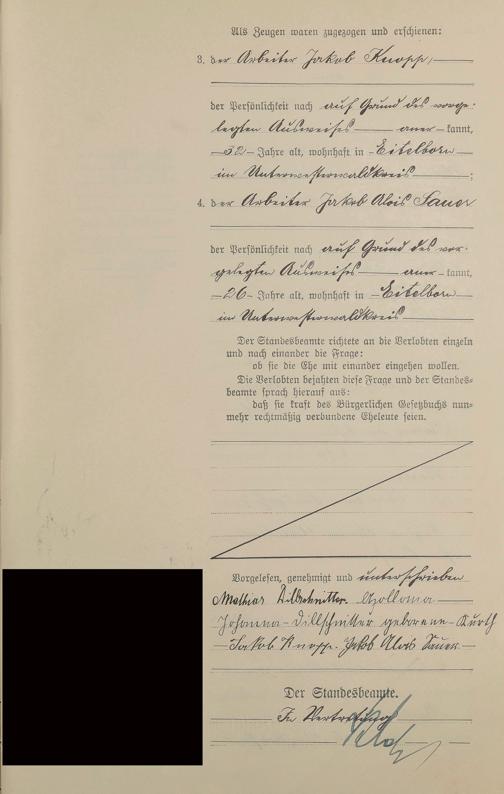 Als Zeugen waren zugezogen und erschienen:
3. der Arbeiter Jakob Knopp,
der Persönlichkeit nach auf Grund des vorge-
legten Ausweises aner-kannt,
32 Jahre alt, wohnhaft in Eitelborn
im Unterwesterwaldkreis;
4. der Arbeiter Jakob Alois Sauer
der Persönlichkeit nach auf Grund des vor-
gelegten Ausweises aner-kannt,
26 Jahre alt, wohnhaft in Eitelborn
im Unterwesterwaldkreis
Der Standesbeamte richtete an die Verlobten einzeln
und nach einander die Frage:
ob sie die Ehe mit einander eingehen wollen.
Die Verlobten bejahten diese Frage und der Standes-
beamte sprach hierauf aus:
daß sie kraft des Bürgerlichen Gesetzbuchs nun-
mehr rechtmäßig verbundene Eheleute seien.
Vorgelesen, genehmigt und unterschrieben
Mathias Dillschnitter. Apollonia
Johanna Dillschnitter geborene Kurth
Jakob Knopp. Jakob Alois Sauer
Der Standesbeamte.
In Vertretung